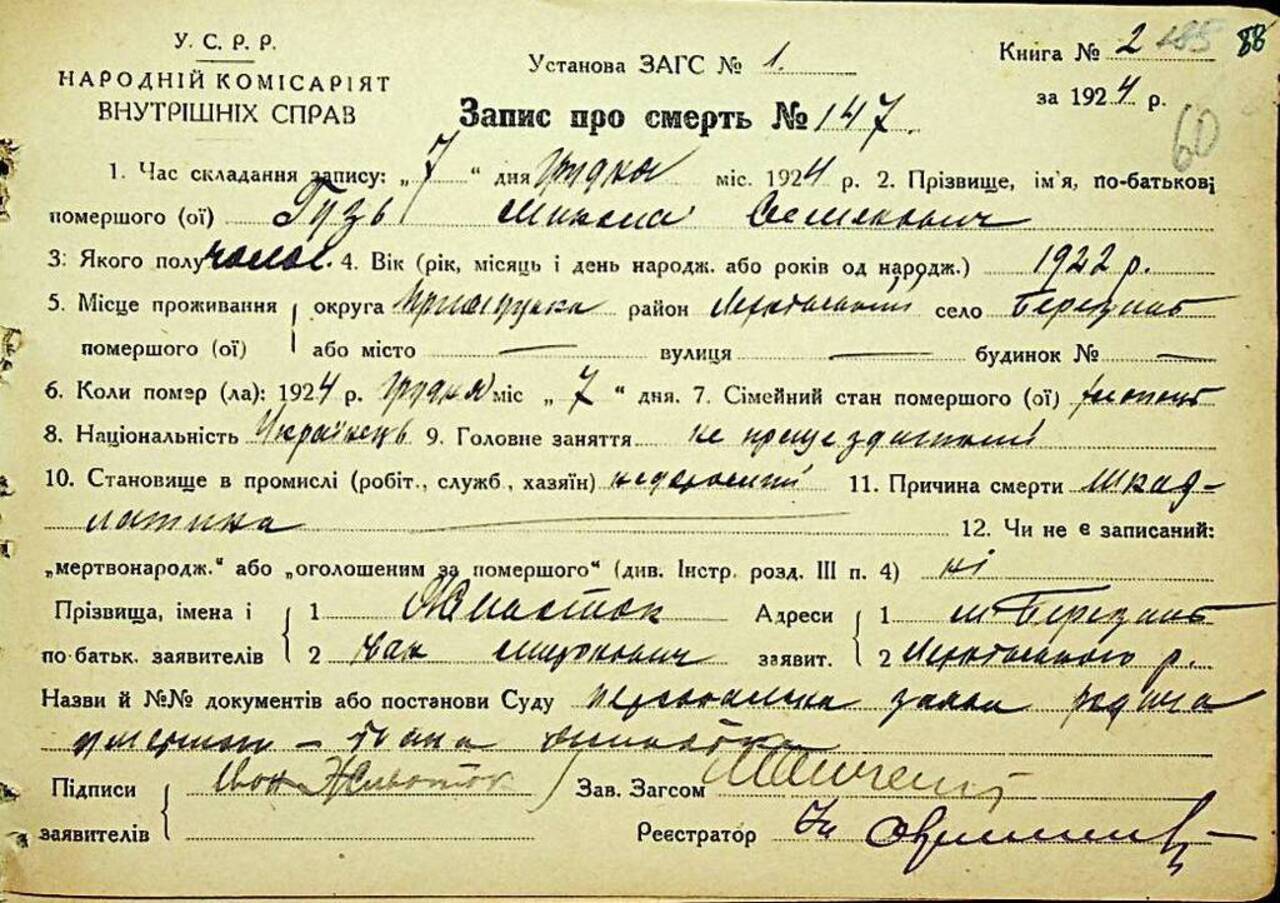 У. С. Р. Р.
НАРОДНІЙ КОМІСАРІЯТ
ВНУТРІШНІХ СПРАВ
Установа ЗАГС № 1.
Книга № 2 185 88
за 1924 р.
60
Запис про смерть № 147.
1. Час складання запису: „7“ дня грудня міс. 1924 р. 2. Прізвище, ім'я, по-батькові
померлого (ої) Гузь Микола Семенович
3. Якого полу чолов. 4. Вік (рік, місяць і день народж. або років од народж.) 1922 р.
5. Місце проживання округа Прилуцька район село Березань
померлого (ої) або місто — вулиця — будинок № —
6. Коли помер (ла): 1924 р. грудня міс „7“ дня. 7. Сімейний стан померлого (ої) хлопець
8. Національність Українець 9. Головне заняття не працездатний
10. Становище в промислі (робіт., служб., хазяїн) 11. Причина смерти шкар-
латина 12. Чи не є записаний:
„мертвонародж.“ або „оголошеним за померлого“ (див. Інстр. розд. III п. 4) ні
Прізвища, імена і 1 Адреси 1 м. Березань
по-батьк. заявителів 2 заявит. 2 р.
Назви й №№ документів або постанови Суду персональна заява родича
Івана
Підписи Іван Животок Зав. Загсом
заявителів Реєстратор